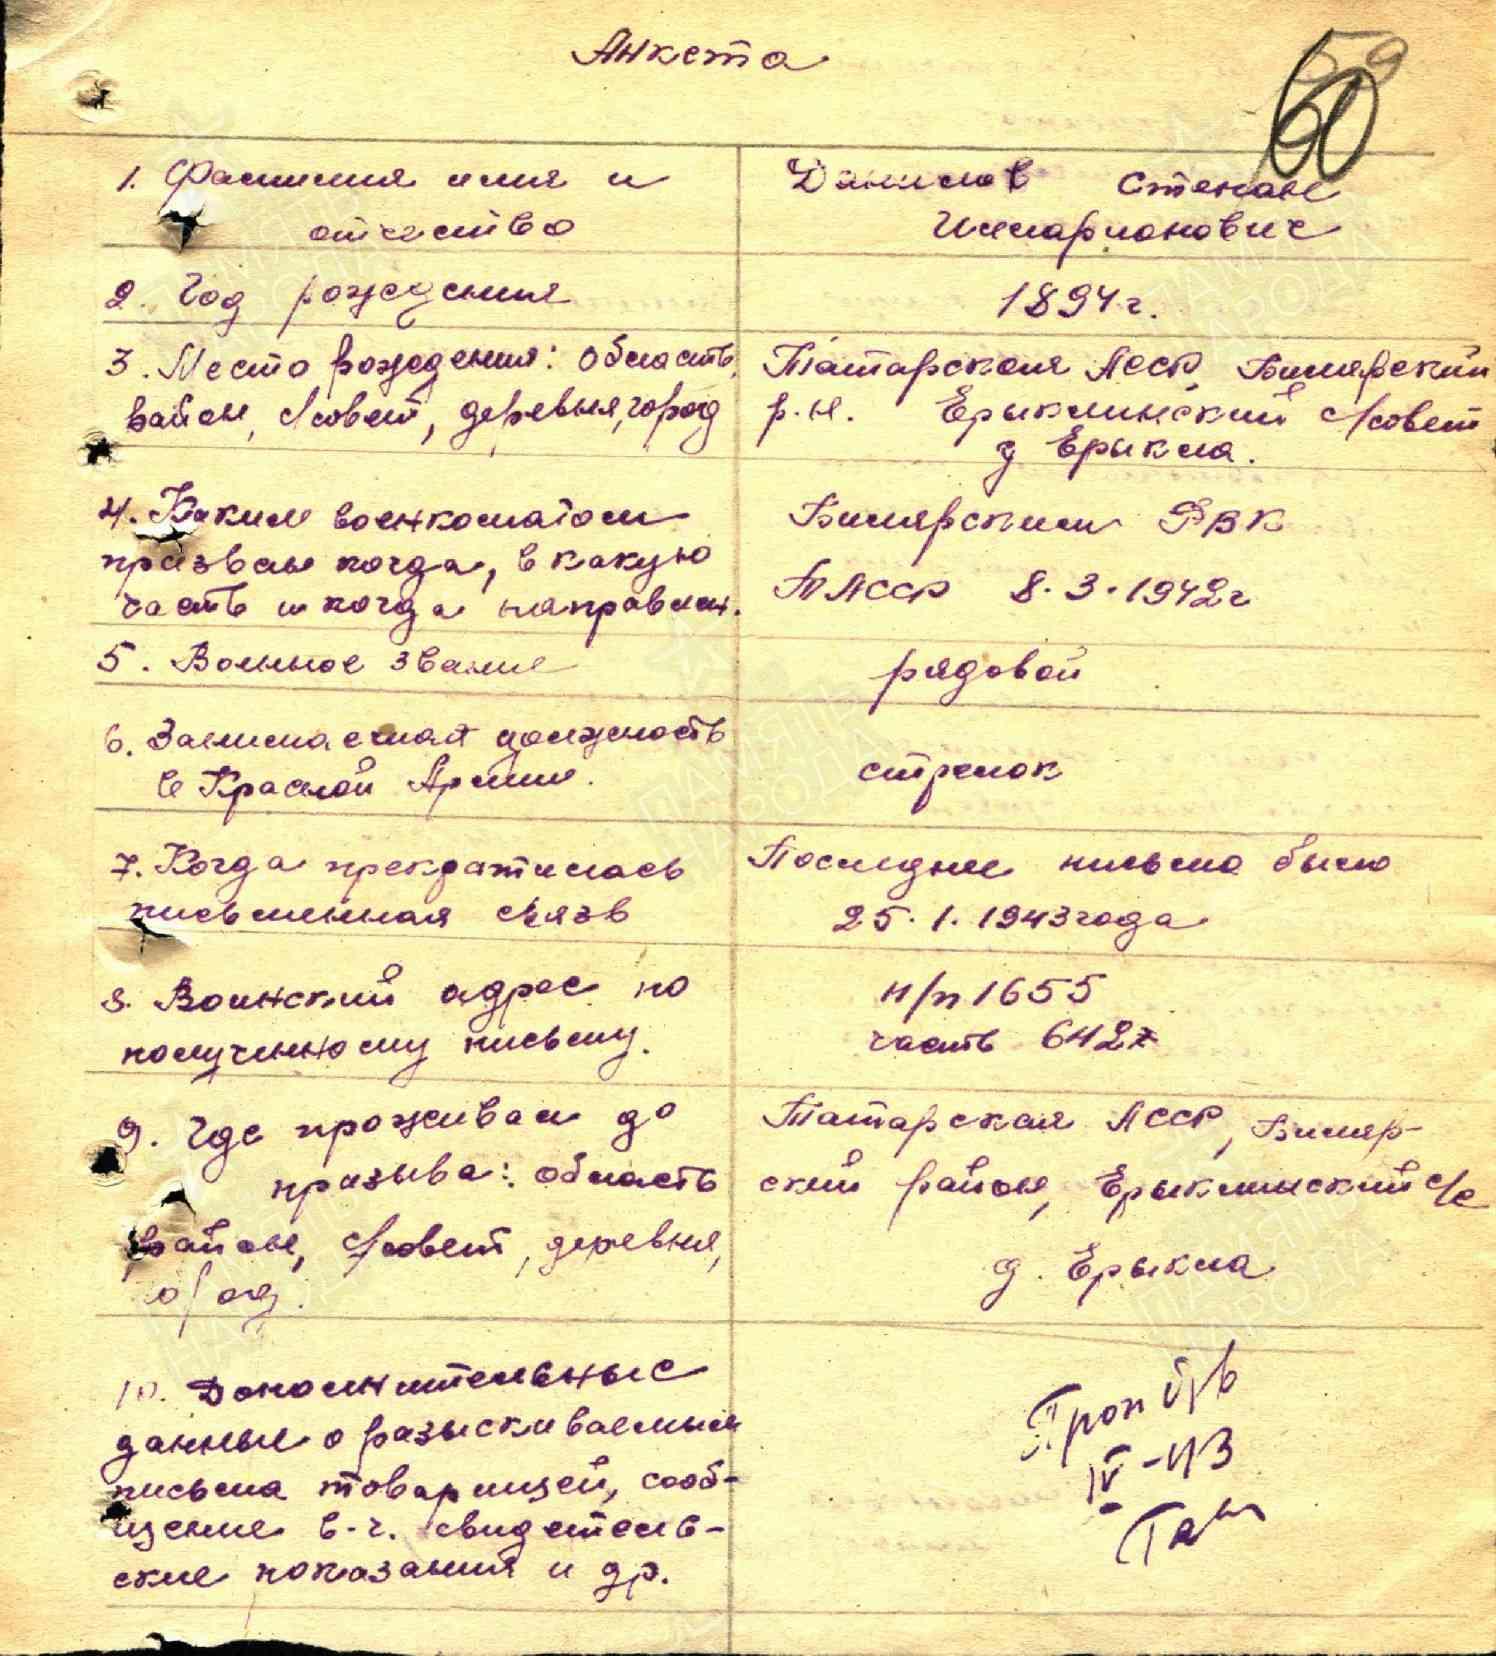 Анкета
59
60
1. Фамилия имя и
отчество
Данилов Степан
Илларионович
2. Год рождения
1894 г.
3. Место рождения: область,
район, с/совет, деревня, город
Татарская АССР, Билярский
р-н. Ерыклинский с/совет
д Ерыкла.
4. Каким военкоматом
призван когда, в какую
часть и когда направлен.
Билярским РВК
ТАССР 8.3.1942г
5. Военное звание
рядовой
6. Занимаемая должность
в Красной Армии.
стрелок
7. Когда прекратилась
письменная связь
Последнее письмо было
25.1.1943 года
8. Воинский адрес по
полученному письму.
п/п 1655
часть 6427
9. Где проживал до
призыва: область
район, с/совет, деревня,
город.
Татарская АССР, Биляр-
ский район, Ерыклинский с/с
д. Ерыкла
10. Дополнительные
данные о разыскиваемым
письма товарищей, сооб-
щение в-ч. свидетель-
ские показания и др.
IV-43
ПАМЯТЬ
НАРОДА